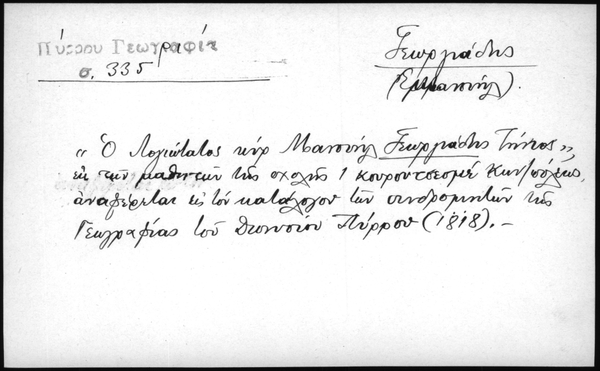 Πύρρου Γεωγραφία
σ. 335
Γεωργιάδης
(Εμμανουήλ).
« Ὁ Λογιώτατος κὺρ Μανουήλ Γεωργιάδης Τήνιος »,
ἐκ τῶν μαθητῶν τῆς σχολῆς Κουρουτσεσμέ Κων/πόλεως,
ἀναφέρεται εἰς τὸν κατάλογον τῶν συνδρομητῶν τῆς
Γεωγραφίας τοῦ Διονυσίου Πύρρου (1818). –